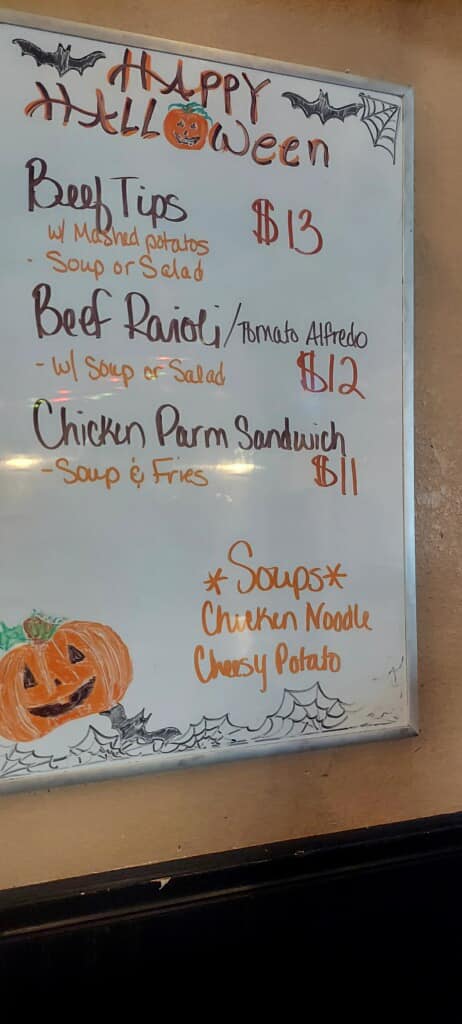 HAPPY
HALLOWEEN
Beef Tips $13
w/ Mashed potatos
- Soup or Salad
Beef Raioli/Tomato Alfredo
- w/ Soup or Salad $12
Chicken Parm Sandwich
- Soup & Fries $11
*Soups*
Chicken Noodle
Cheesy Potato